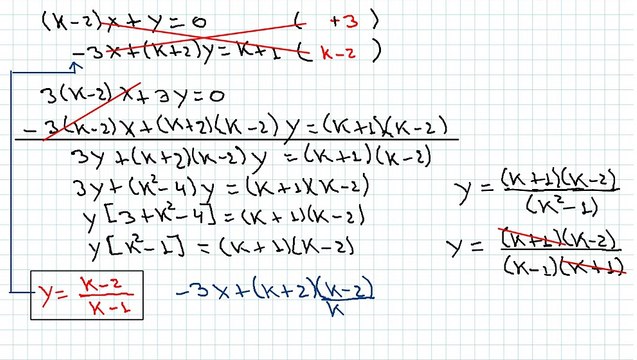 (k-2)x+y=0 ( +3 )
-3x+(k+2)y=k+1 ( k-2 )
3(k-2)x+3y=0
-3(k-2)x+(k+2)(k-2)y=(k+1)(k-2)
3y+(k+2)(k-2)y=(k+1)(k-2)
3y+(k²-4)y=(k+1)(k-2)
y[3+k²-4]=(k+1)(k-2)
y[k²-1]=(k+1)(k-2)
y=(k+1)(k-2)/(k²-1)
y=(k+1)(k-2)/(k-1)(k+1)
y=k-2/k-1
-3x+(k+2)(k-2)/k